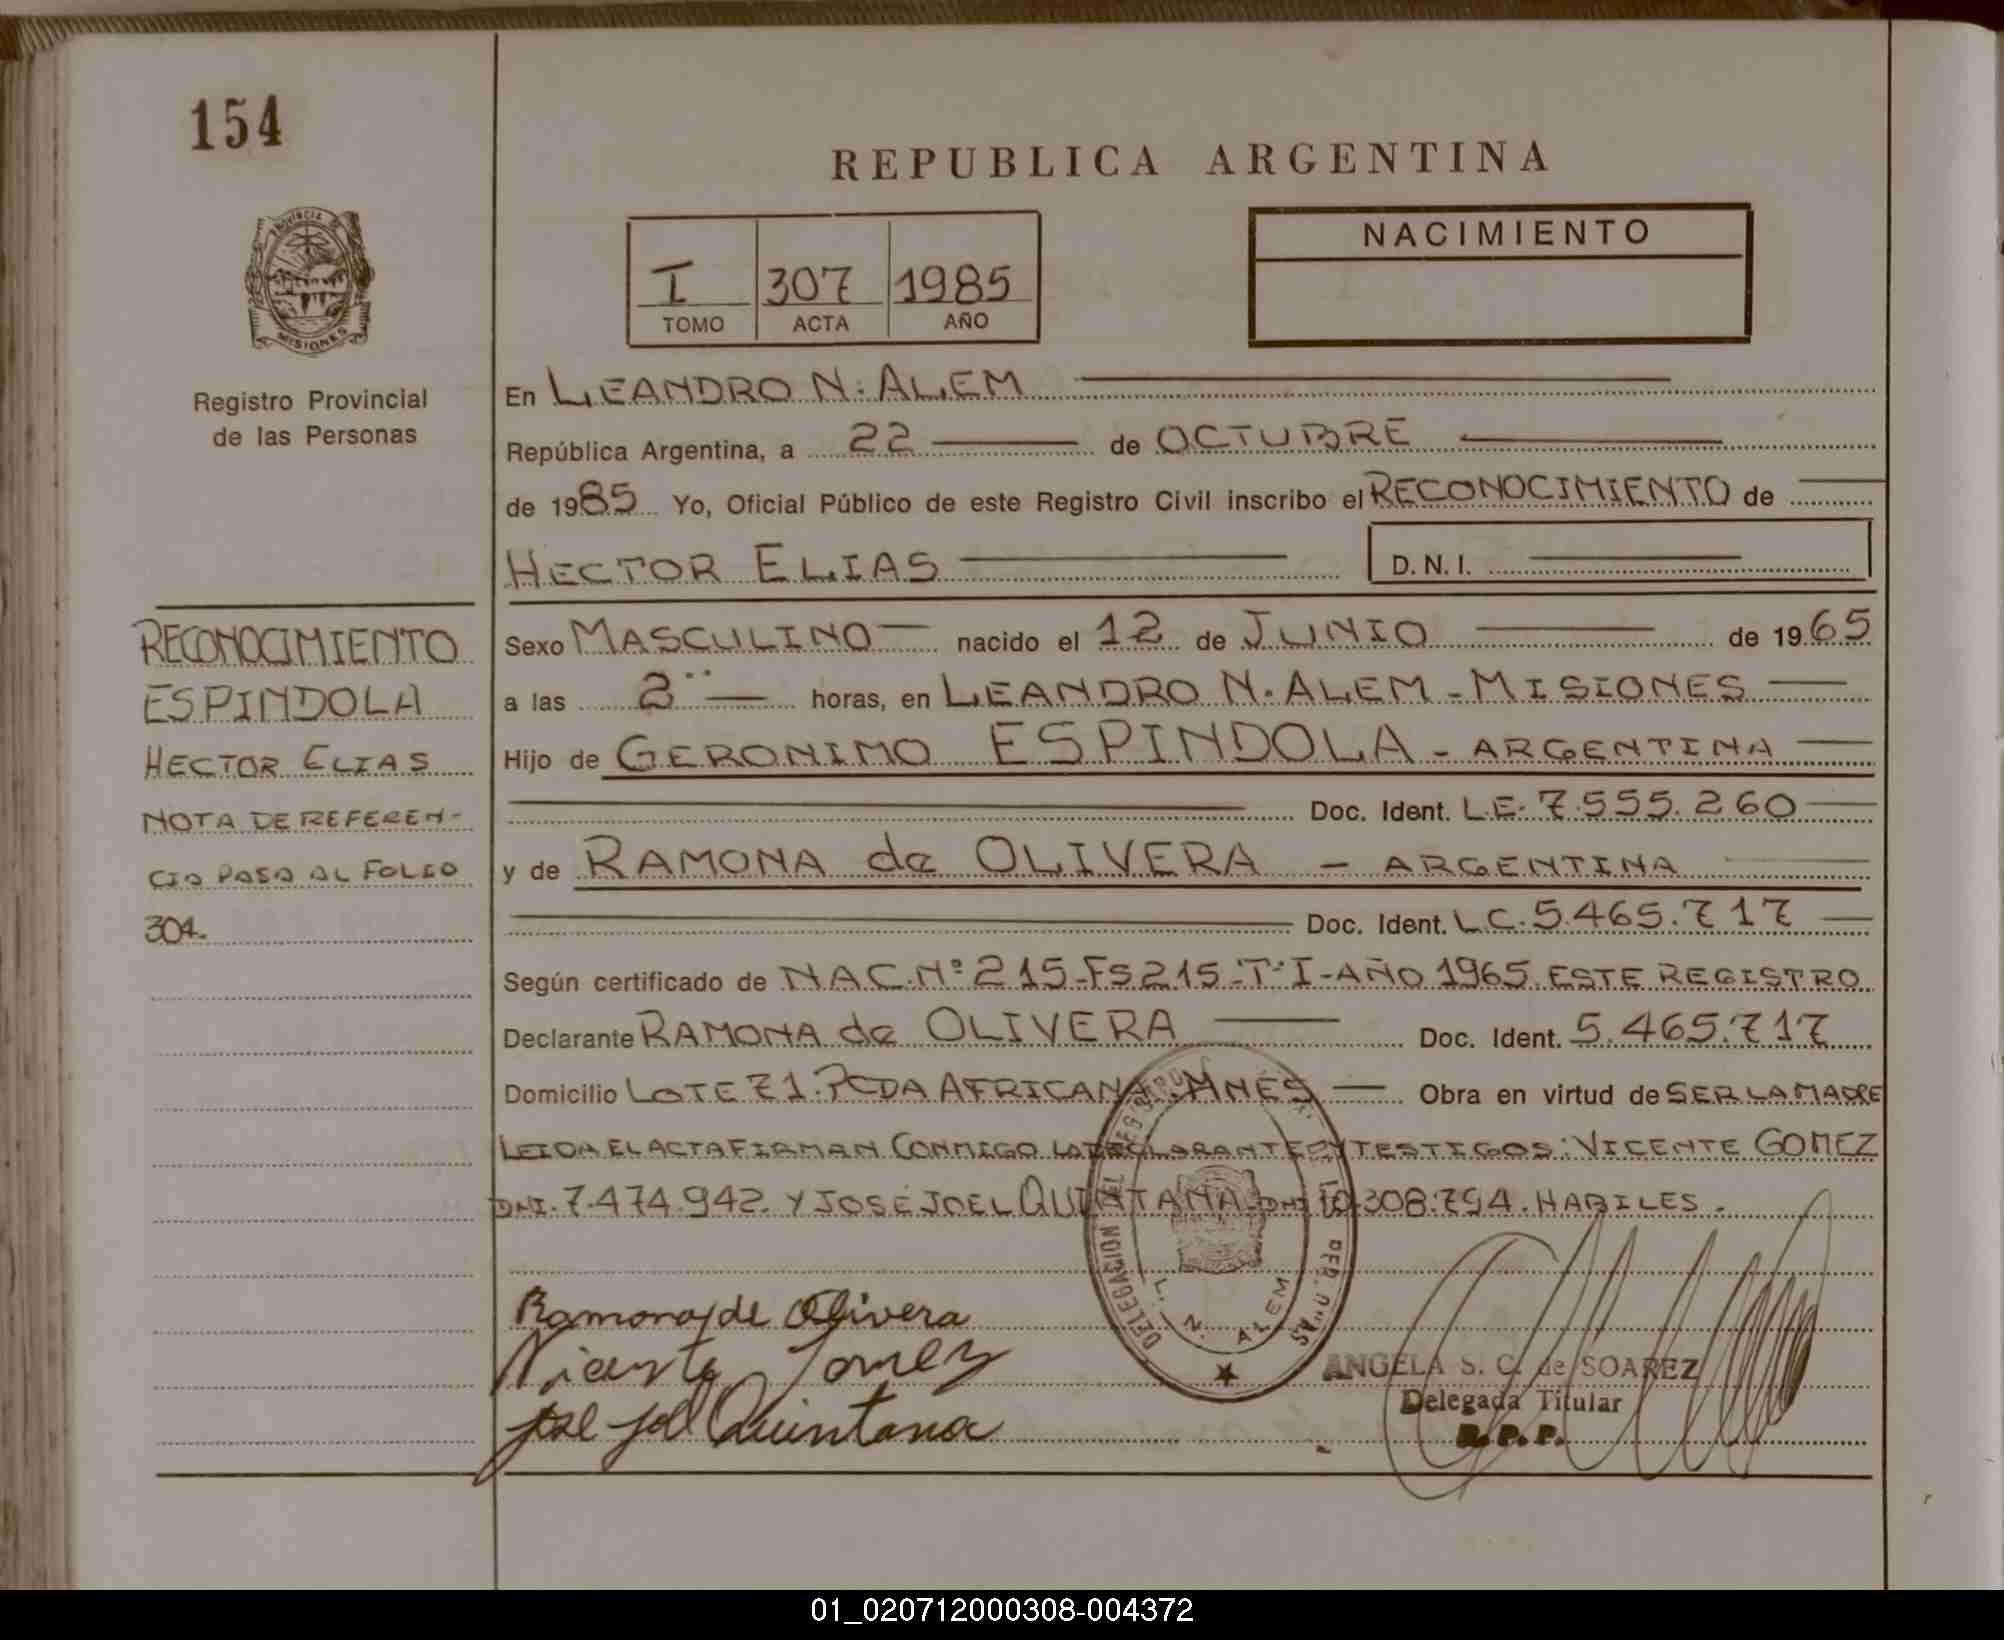 154
REPUBLICA ARGENTINA
PROVINCIA DE
MISIONES
Registro Provincial
de las Personas
I 307 1985
TOMO ACTA AÑO
NACIMIENTO
En LEANDRO N. ALEM
República Argentina, a 22 de OCTUBRE
de 1985 Yo, Oficial Público de este Registro Civil inscribo el RECONOCIMIENTO de
HECTOR ELIAS D.N.I.
RECONOCIMIENTO
ESPINDOLA
HECTOR ELIAS
NOTA DE REFEREN-
CIA PASA AL FOLIO
304.
Sexo MASCULINO nacido el 12 de JUNIO de 1965
a las 2 horas, en LEANDRO N. ALEM - MISIONES
Hijo de GERONIMO ESPINDOLA - ARGENTINA
Doc. Ident. L.E. 7.555.260
y de RAMONA de OLIVERA - ARGENTINA
Doc. Ident. L.C. 5.465.717
Según certificado de NAC. Nº 215-Fº 215-Tº I-AÑO 1965 ESTE REGISTRO
Declarante RAMONA de OLIVERA Doc. Ident. 5.465.717
Domicilio LOTE 71. PCDA AFRICANA. MNES Obra en virtud de SER LA MADRE
LEIDA EL ACTA FIRMAN CONMIGO LA DECLARANTE Y TESTIGOS: VICENTE GOMEZ
DNI. 7.474.942. Y JOSE JOEL QUINTANA DNI 10.308.794. HABILES.
Ramona de Olivera
Vicente Gomez
Jose Joel Quintana
DELEGACION DEL REGISTRO PROV. DE LAS PERSONAS
L. N. ALEM
ANGELA S. C. de SOAREZ
Delegada Titular
R. P. P.
01_020712000308-004372